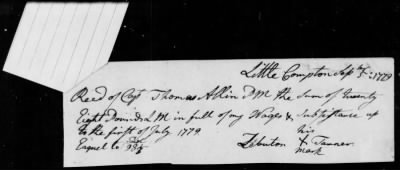 Little Compton Sepr 5th 1779
Recd of Capt Thomas Allin P M the Sum of Twenty
Eight Pounds L M in full of my Wages & Subsistance up
to the first of July 1779
his
Equal to
X Tanner
mark